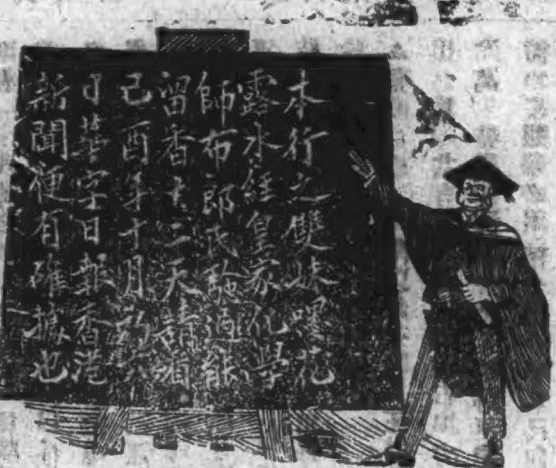 本行之雙妹嘜花
露水經皇家化學
師布郎氏驗過能
留香十二天請看
己酉年十月初
日華字日報香港
新聞便有確據也